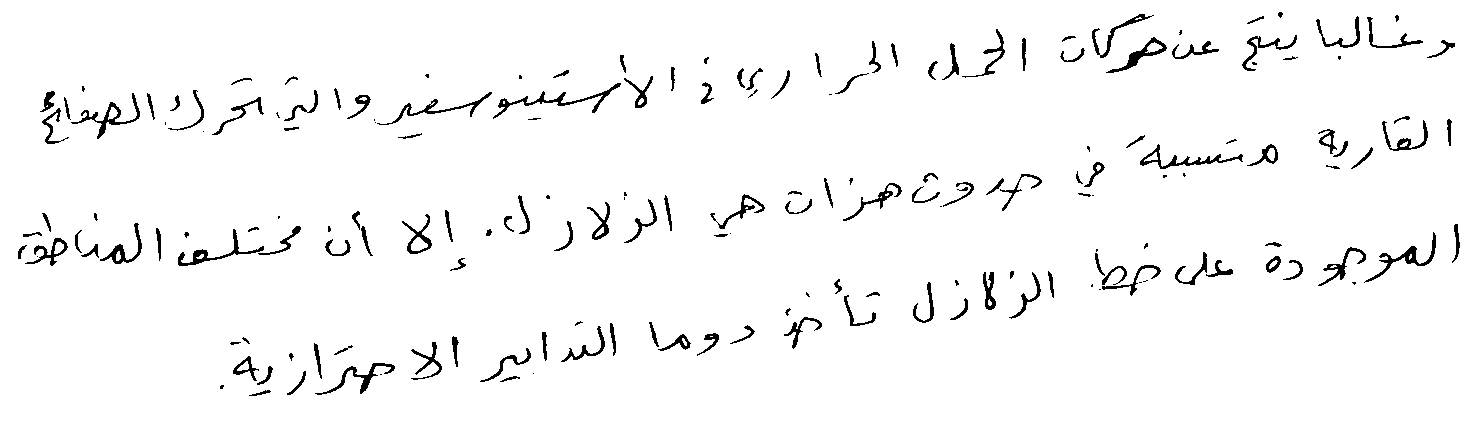 وغالبا ينتج عن حركات الحمل الحراري في الأستينوسفير والتي تحرك الصفائح
القارية متسببة في حدوث هزات هي الزلازل. إلا أن مختلف المناطق
الموجودة على خط الزلازل تأخذ دوما التدابير الاحترازية.